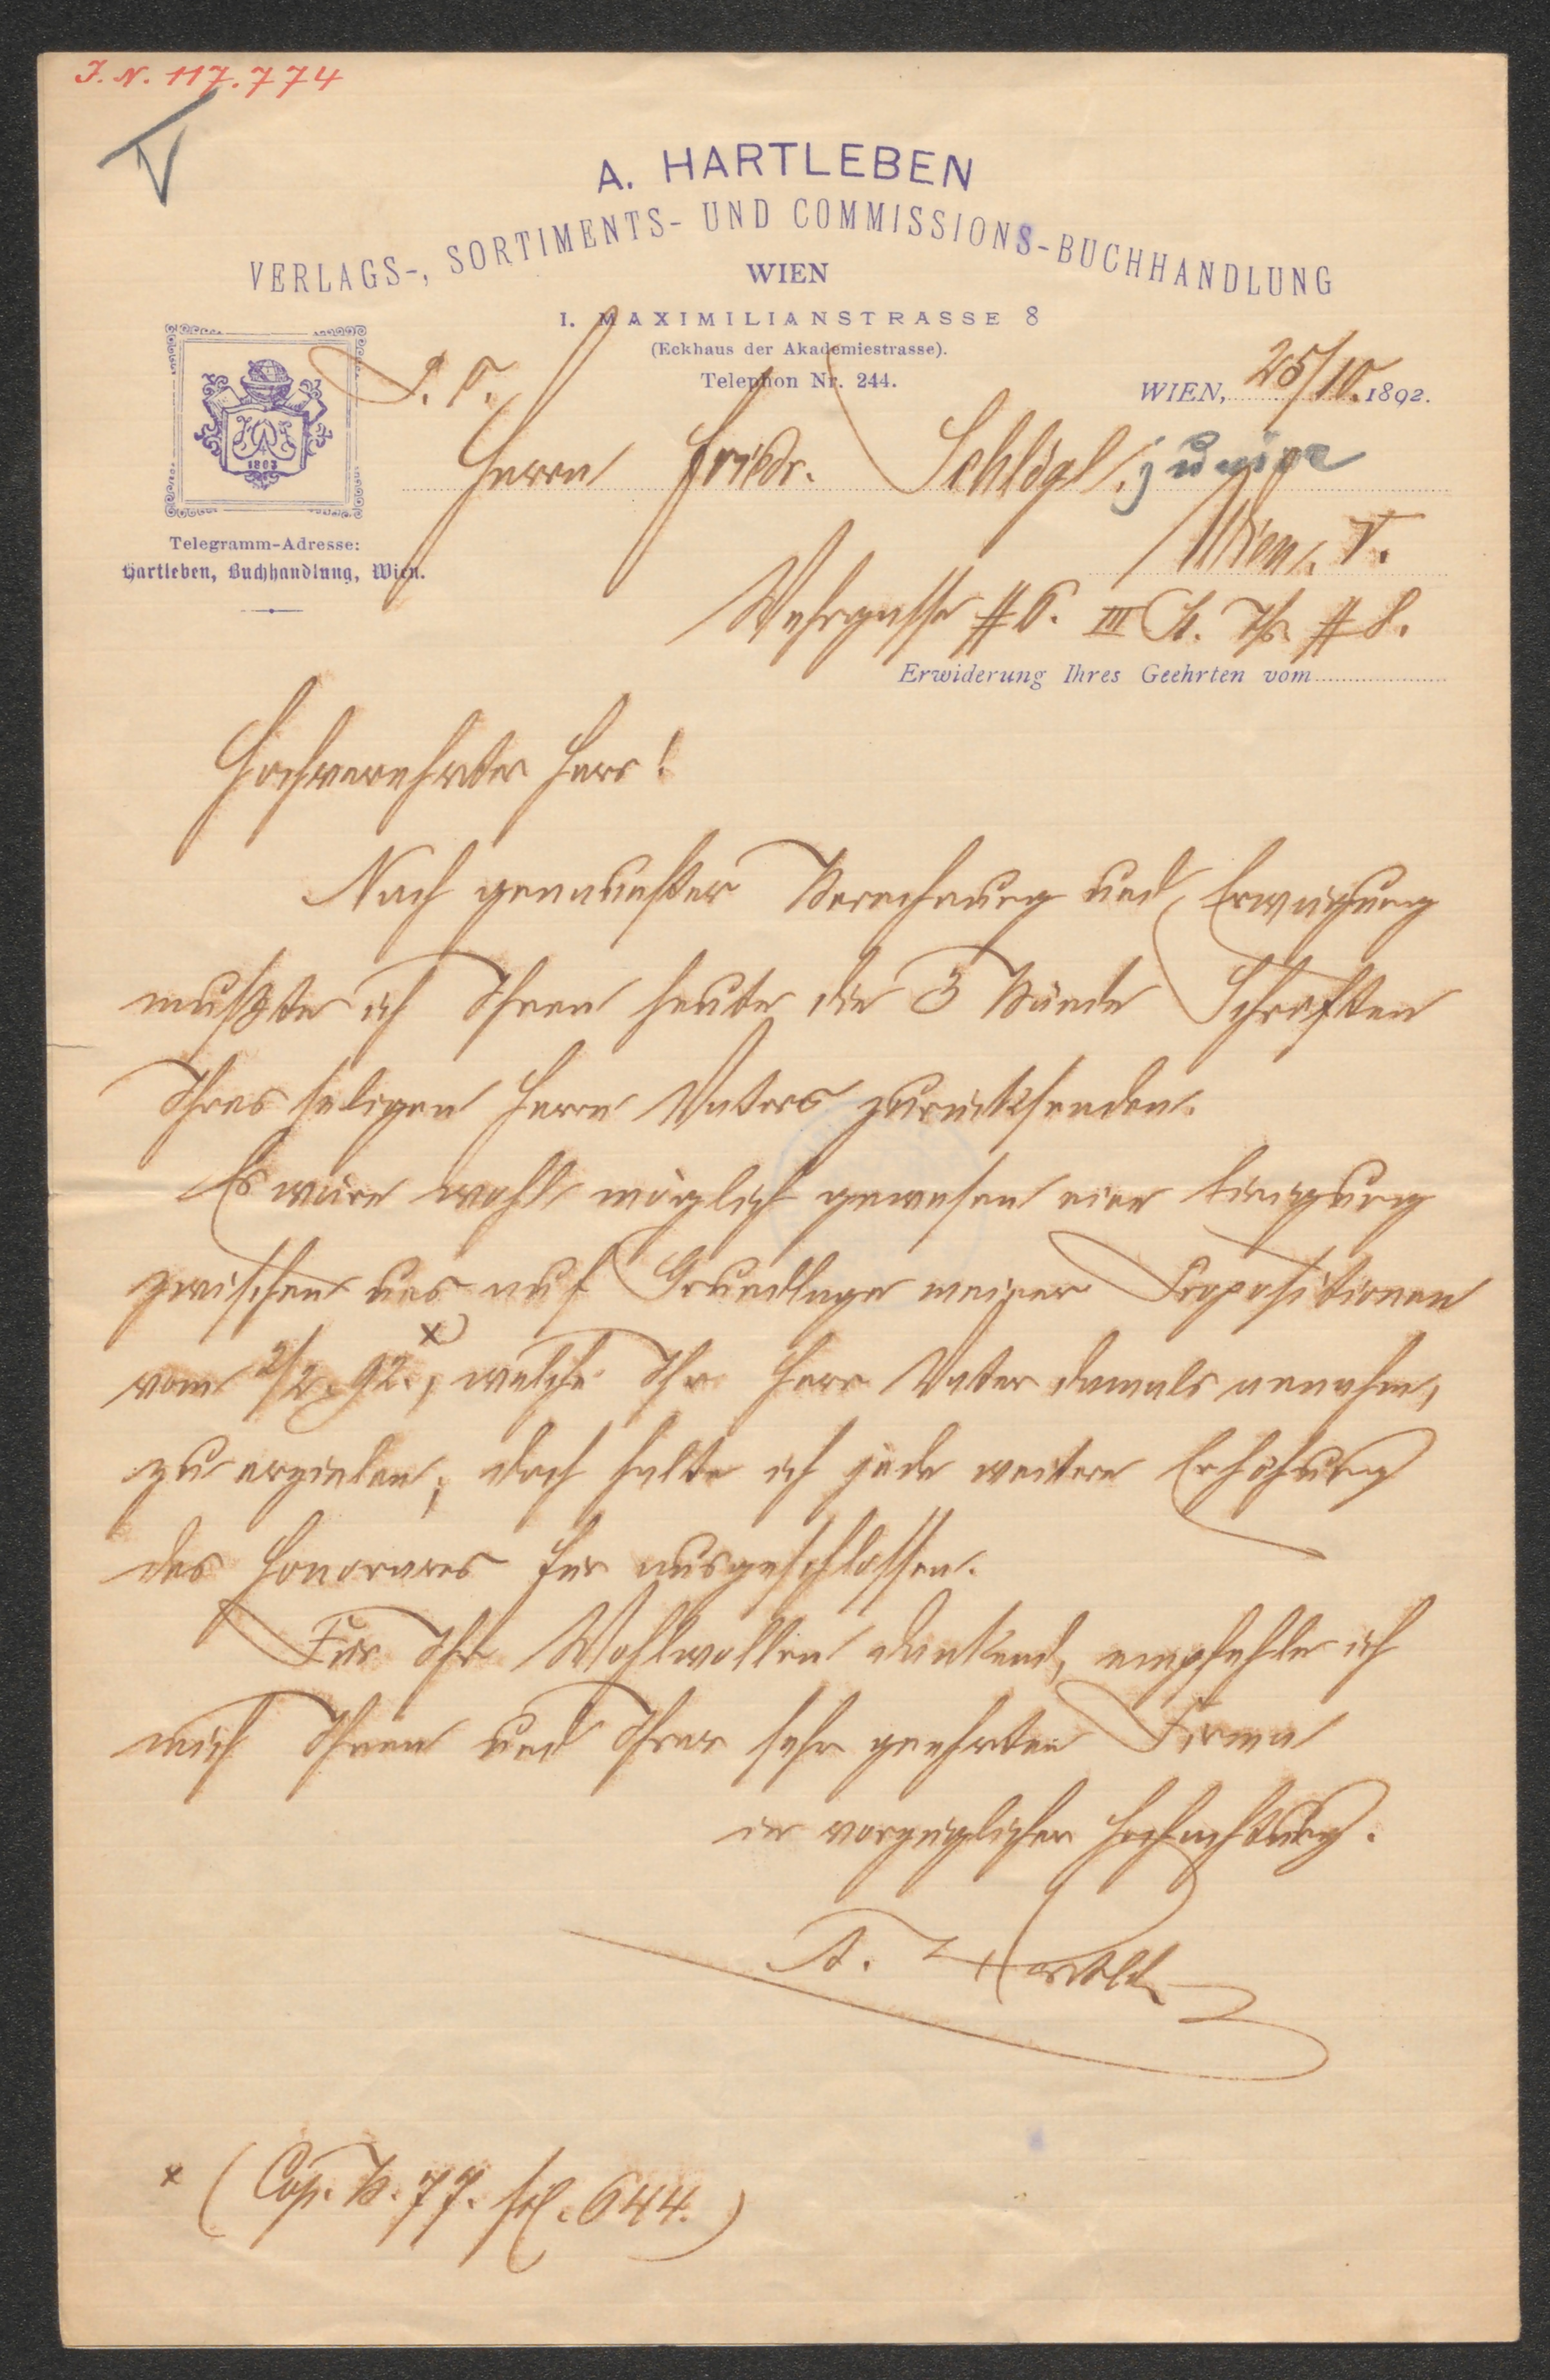 J. N. 117.774
A. HARTLEBEN
VERLAGS-, SORTIMENTS- UND COMMISSIONS-BUCHHANDLUNG
WIEN
I. MAXIMILIANSTRASSE 8
(Eckhaus der Akademiestrasse).
Telephon Nr. 244.
WIEN, 25/10. 1892.
1803
Telegramm-Adresse:
Hartleben, Buchhandlung, Wien.
P. T.
Herrn Friedr. Schlögl, junior
Wien, V.
Wehrgasse # 6. III St. Th. # 8.
Erwiderung Ihres Geehrten vom
Hochverehrter Herr!
Nach genauester Berechnung und Erwägung
mußte ich Ihnen heute die 3 Bände Schriften
Ihres seligen Herrn Vaters zurücksenden.
Es wäre wohl möglich gewesen eine Einigung
zwischen uns auf Grundlage meiner Propositionen
vom 2/2. 92. x), welche Ihr Herr Vater damals annahm,
zu erzielen; doch halte ich jede weitere Erhöhung
des Honorares für ausgeschlossen.
Für Ihr Wohlwollen dankend, empfehle ich
mich Ihnen und Ihrer sehr geehrten Firma
in vorzüglicher Hochachtung.
A. Hartleb
x (Cop. B. 77. fol. 644.)